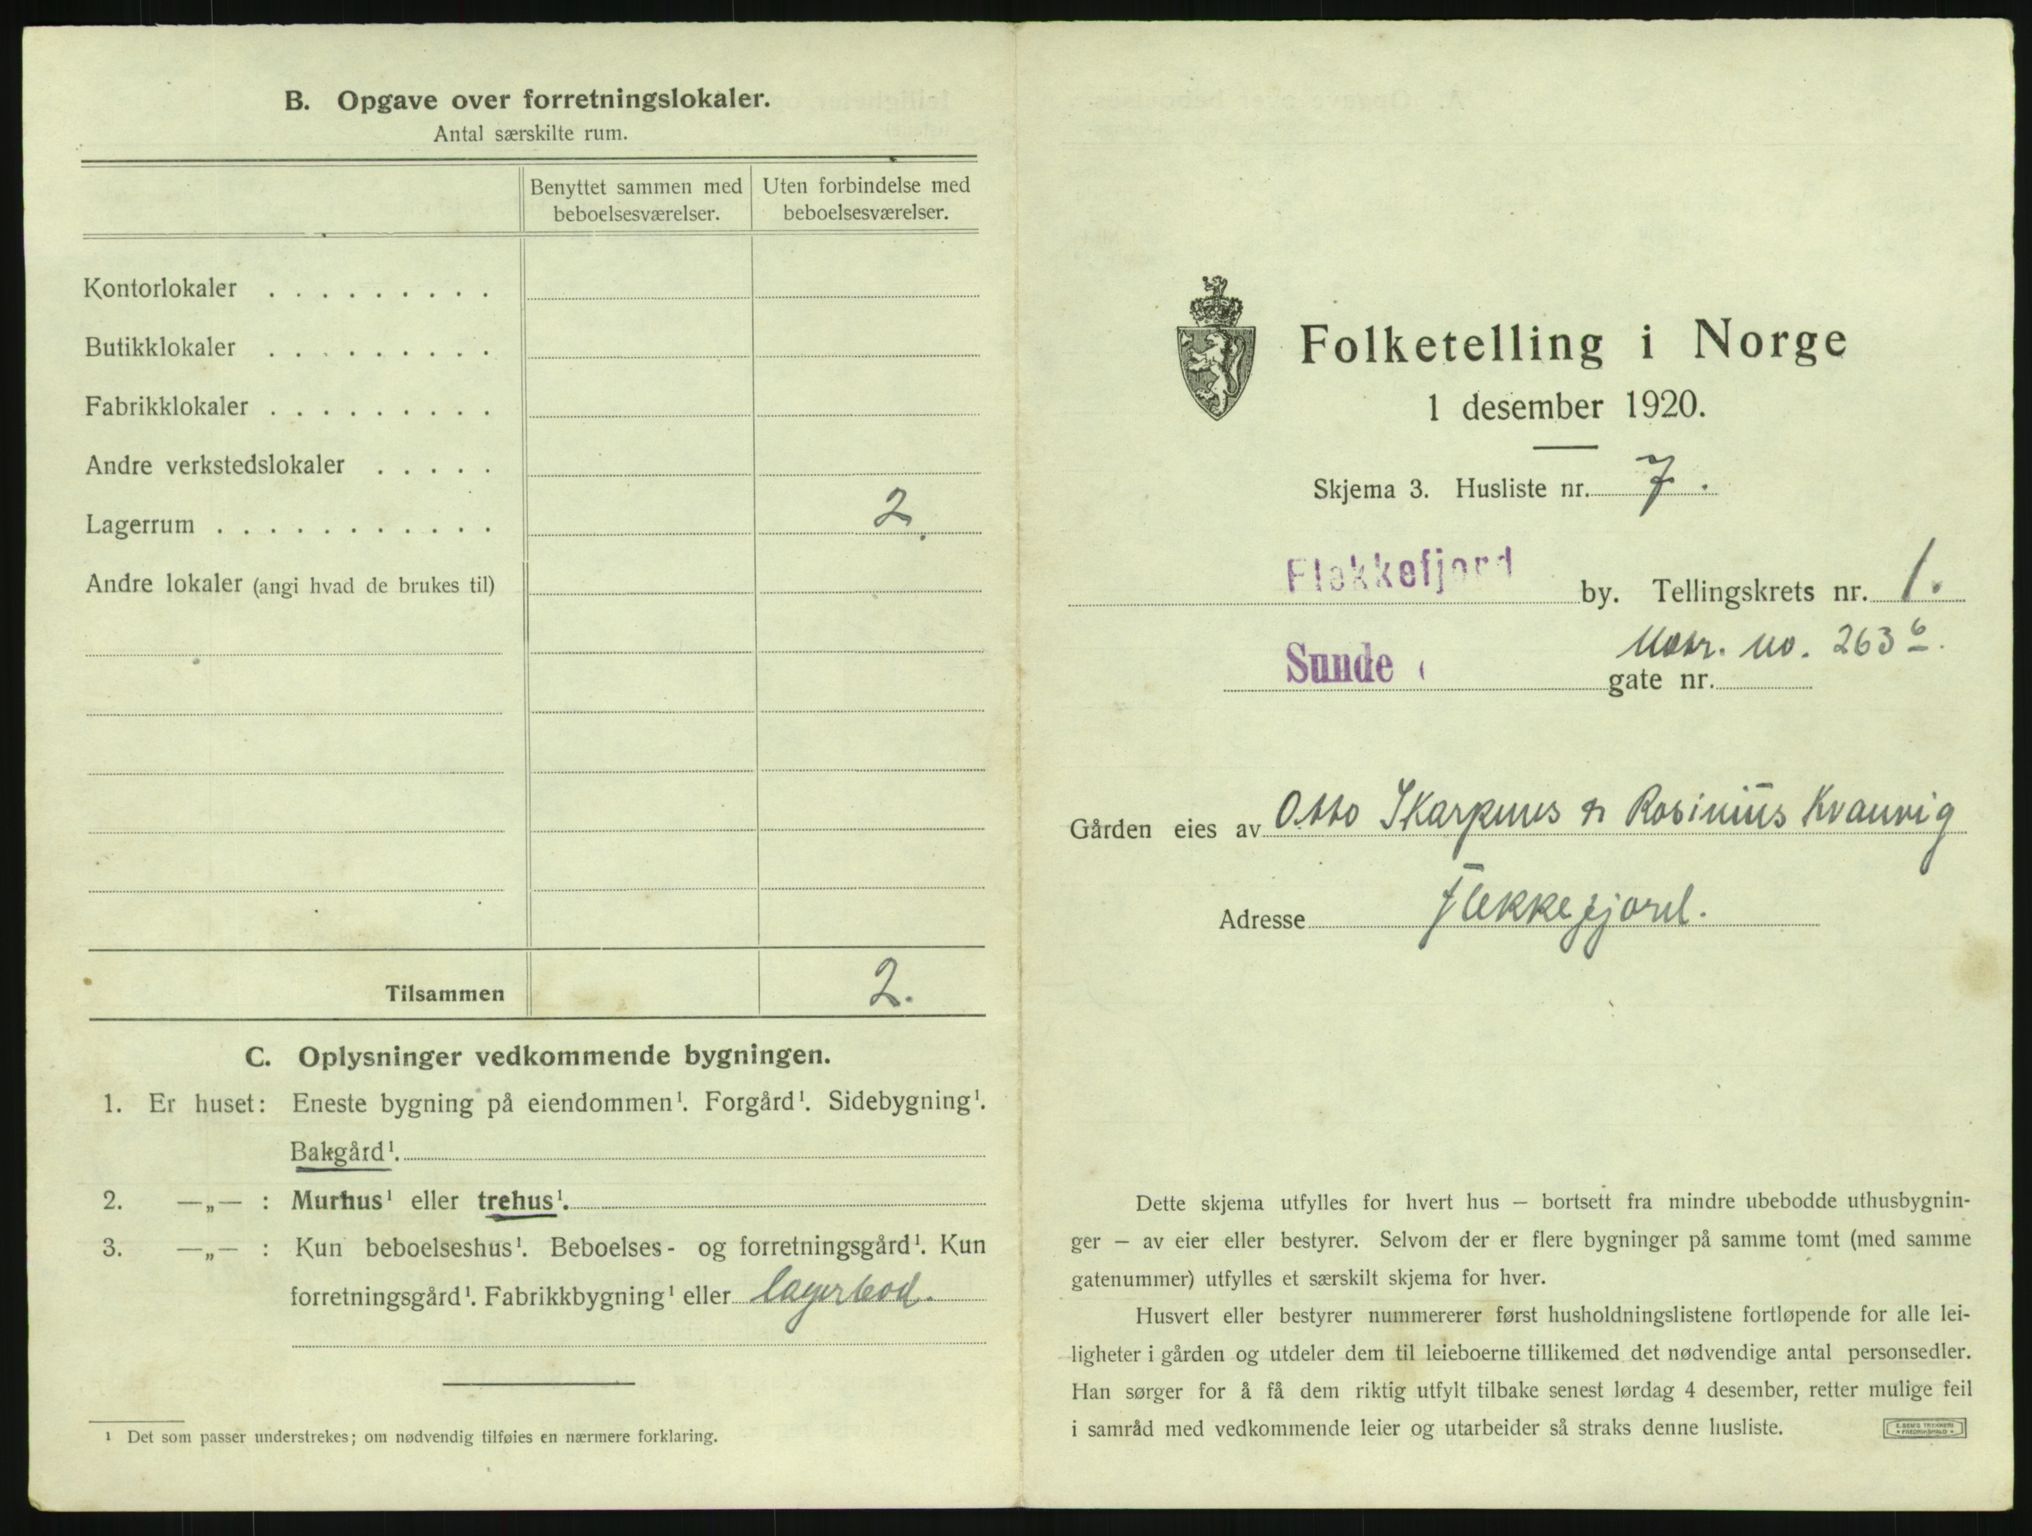 B. Opgave over forretningslokaler.
Antal særskilte rum.
Benyttet sammen med beboelsesværelser.
Uten forbindelse med beboelsesværelser.
Kontorlokaler . . . . . . . . .
Butikklokaler . . . . . . . . .
Fabrikklokaler . . . . . . . . .
Andre verkstedslokaler . . . . .
Lagerrum . . . . . . . . . . . 2
Andre lokaler (angi hvad de brukes til)
Tilsammen 2.
C. Oplysninger vedkommende bygningen.
1. Er huset: Eneste bygning på eiendommen¹. Forgård¹. Sidebygning¹.
Bakgård¹.
2. —„— : Murhus¹ eller trehus¹.
3. —„— : Kun beboelseshus¹. Beboelses- og forretningsgård¹. Kun
forretningsgård¹. Fabrikkbygning¹ eller lagerbod.
¹ Det som passer understrekes; om nødvendig tilføies en nærmere forklaring.
Folketelling i Norge
1 desember 1920.
Skjema 3. Husliste nr. 7.
Flekkefjord by. Tellingskrets nr. 1.
Matr. no. 263 b.
Sunde gate nr.
Gården eies av Otto Skarpnes & Rasinius Kvanvig
Adresse Flekkefjord.
Dette skjema utfylles for hvert hus – bortsett fra mindre ubebodde uthusbygnin-
ger – av eier eller bestyrer. Selvom der er flere bygninger på samme tomt (med samme
gatenummer) utfylles et særskilt skjema for hver.
Husvert eller bestyrer nummererer først husholdningslistene fortløpende for alle lei-
ligheter i gården og utdeler dem til leieboerne tillikemed det nødvendige antal personsedler.
Han sørger for å få dem riktig utfylt tilbake senest lørdag 4 desember, retter mulige feil
i samråd med vedkommende leier og utarbeider så straks denne husliste.